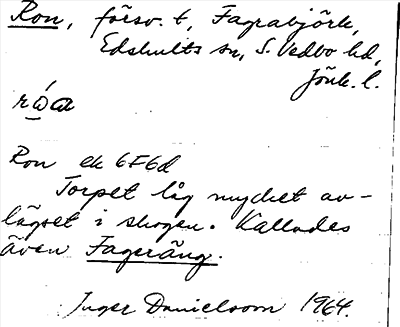 Ron, försv. t, Fagrabjörk,
Edshults sn, S. Vedbo hd,
Jönk. l.
Ron ek 6F6d
Torpet låg mycket av-
lägset i skogen. Kallades
även Fageräng.
Inger Danielsson 1964.